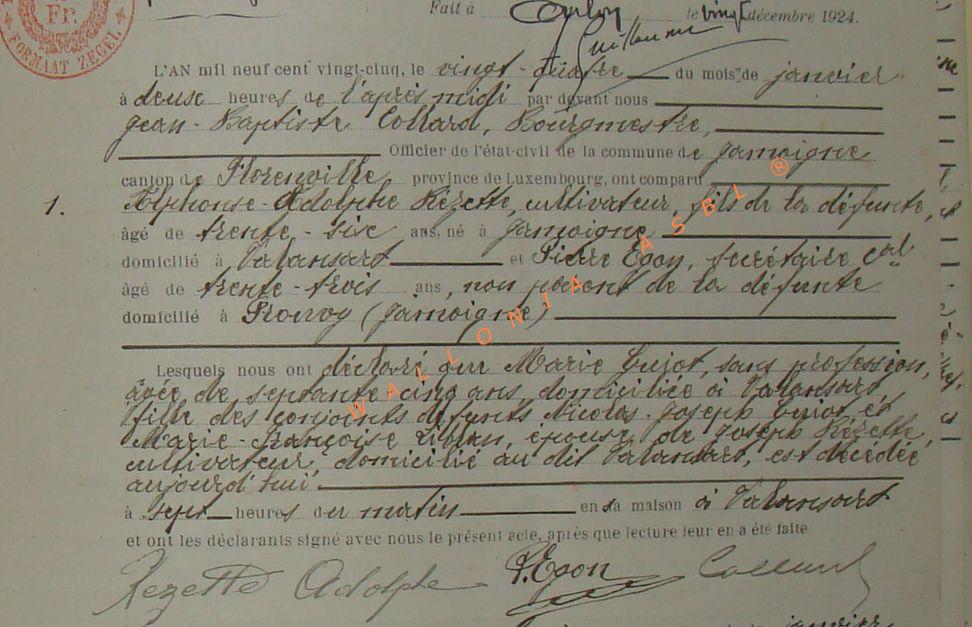 Fr.
FORMAAT ZEGEL
Fait à Arlon le vingt décembre 1924.
Guillaume
L'AN mil neuf cent vingt-cinq, le vingt-quatre du mois de janvier
à deux heures de l'après midi par devant nous
Jean-Baptiste Collard, Bourgmestre,
Officier de l'état-civil de la commune de Jamoigne
canton de Florenville province de Luxembourg, ont comparu
1. Alphonse-Adolphe Rézette, cultivateur, fils de la défunte,
âgé de trente-six ans, né à Jamoigne
domicilié à Valansart et Pierre Egon, secrétaire cal
âgé de trente-trois ans, non parent de la défunte
domicilié à Prouvy (Jamoigne)
Lesquels nous ont déclaré que Marie Guiot, sans profession,
âgée de septante cinq ans, domiciliée à Valansart,
fille des conjoints défunts Nicolas-Joseph Guiot et
Marie-Françoise, épouse de Joseph Rézette,
cultivateur, domicilié au dit Valansart, est décédée
aujourd'hui
à sept heures du matin en sa maison à Valansart
et ont les déclarants signé avec nous le présent acte, après que lecture leur en a été faite
Rezette Adolphe P. Egon Collard
janvier
WALLONIA ASBL ®